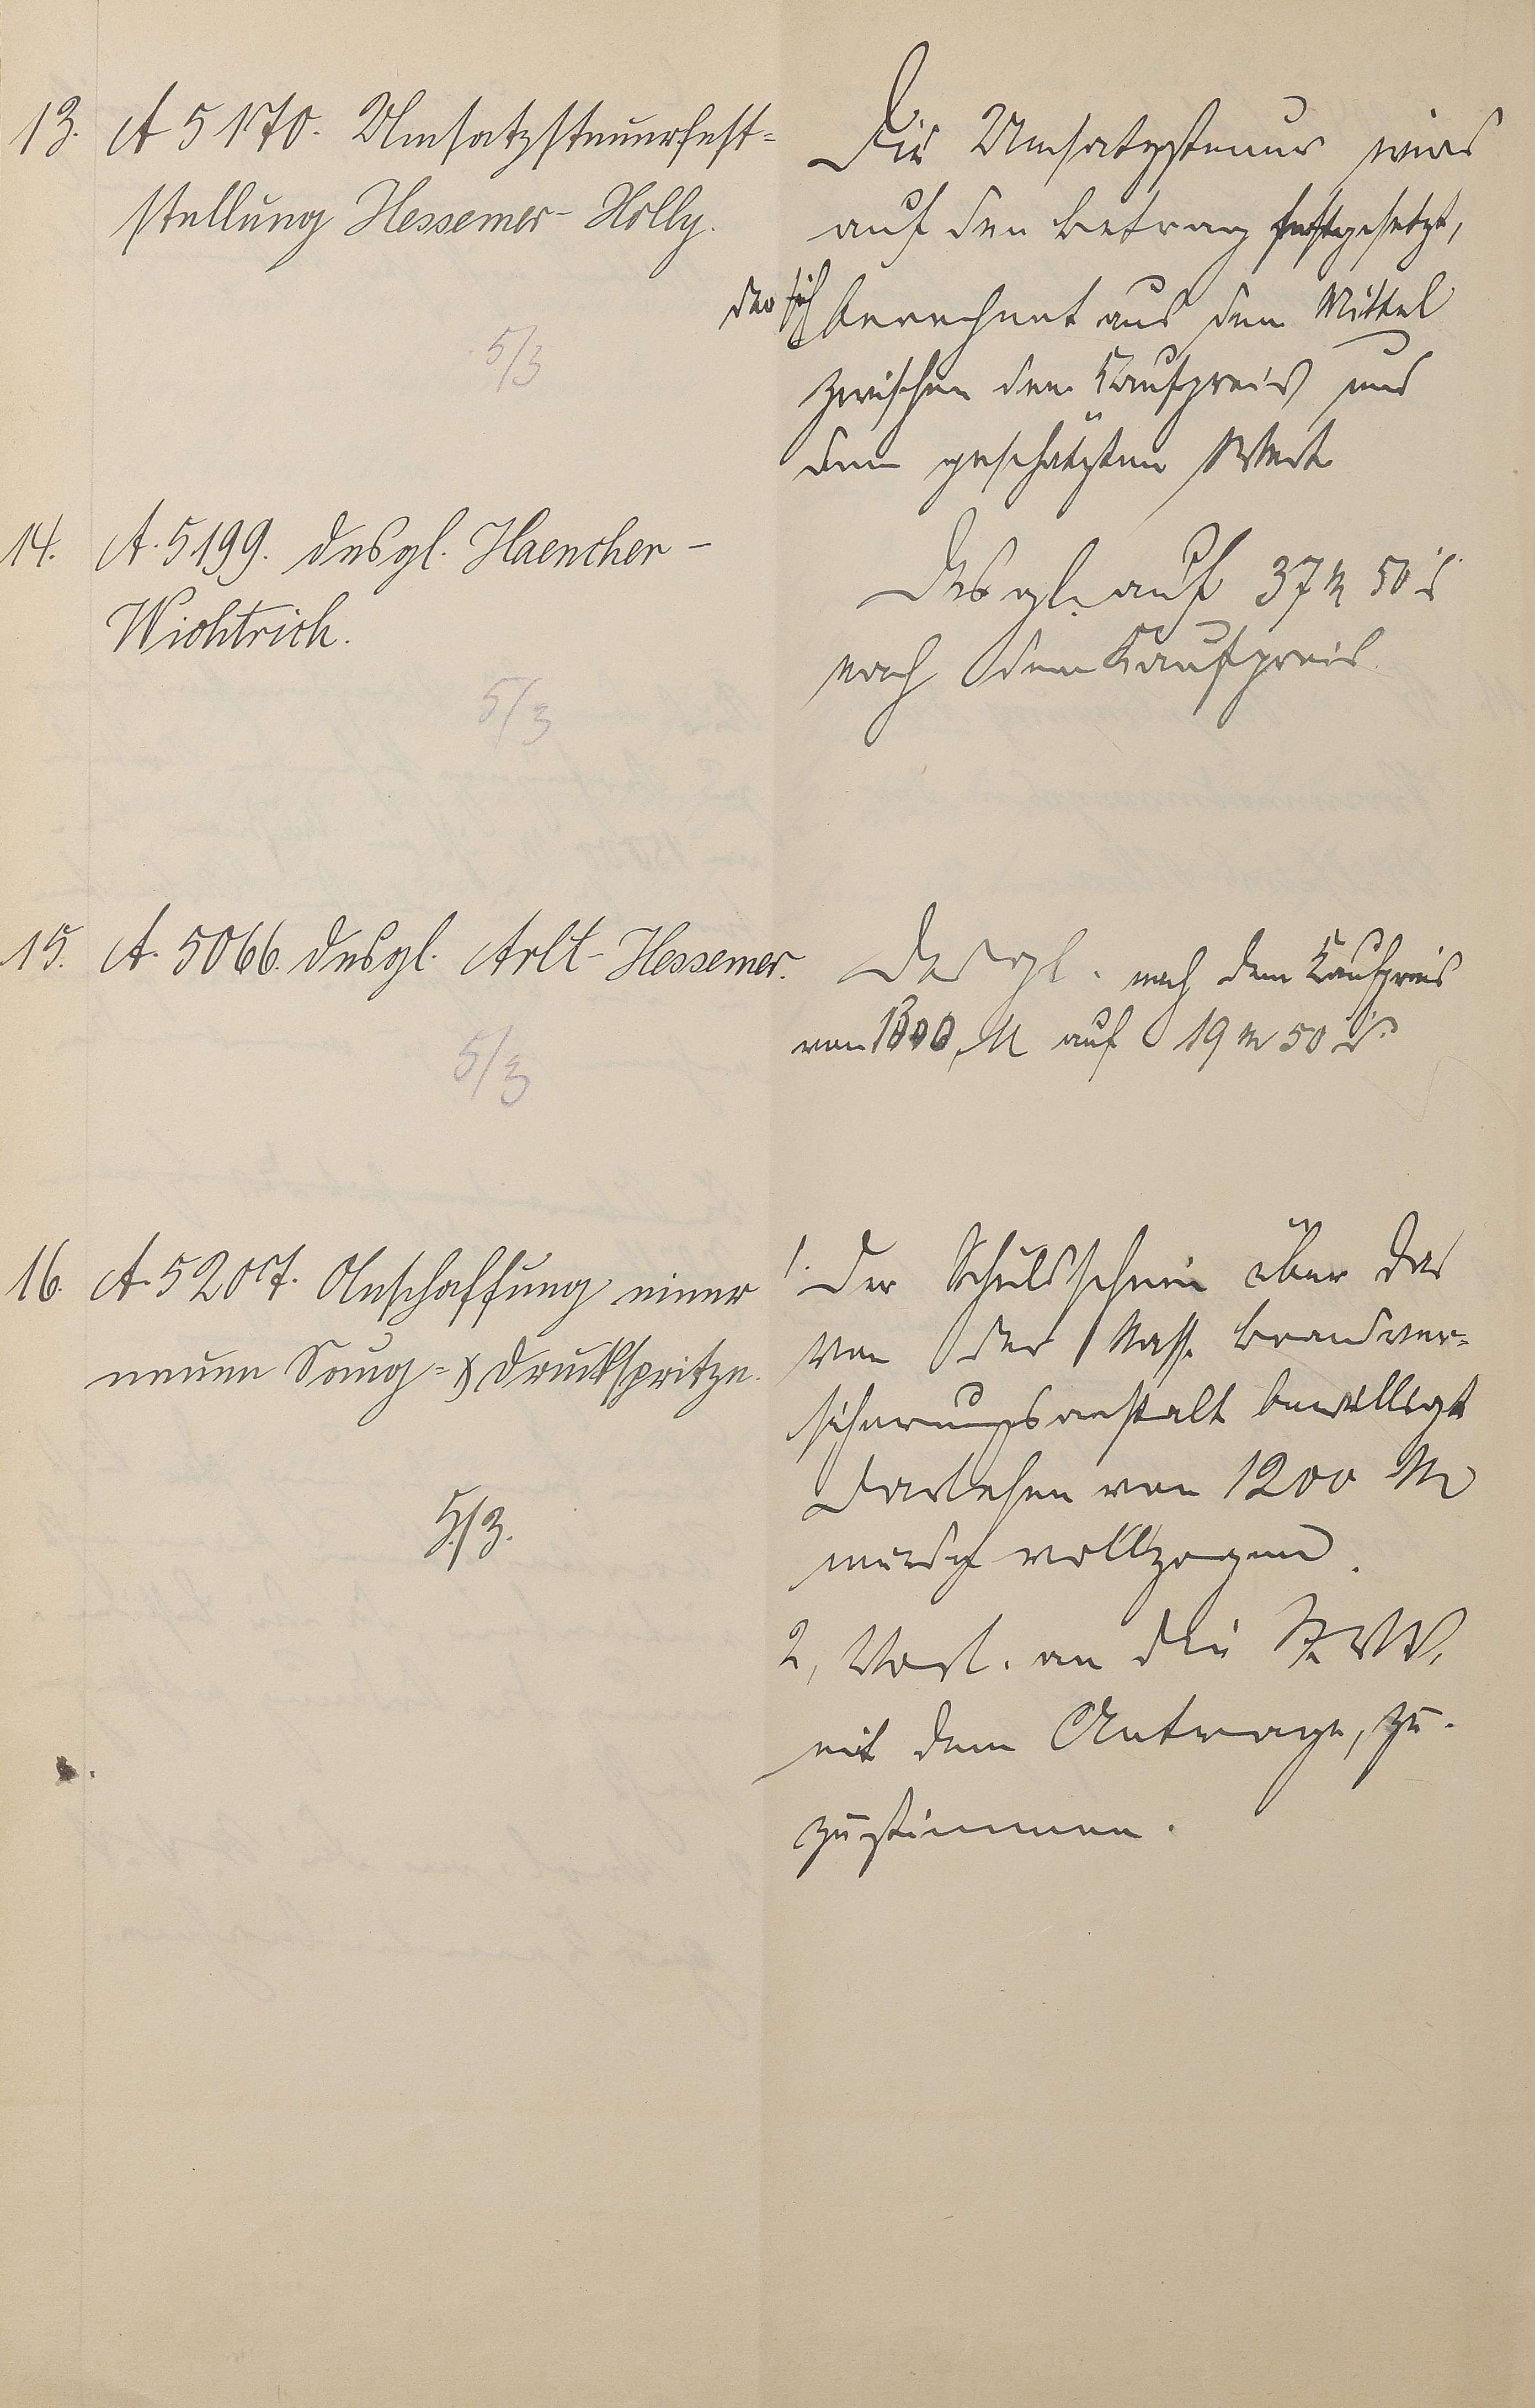 13. A 5170. Umsatzsteuerfest=
stellung Hessemer-Holly.
5/3
Die Umsatzsteuer wird
auf den Betrag festgesetzt,
der sich berechnet aus dem Mittel
zwischen dem Kaufpreis und
dem geschätzten Wert
14. A. 5199. desgl. Haencher-
Wichtrich.
5/3
Desgl. auf 37 M 50 d
nach dem Kaufpreis.
15. A. 5066. desgl. Arlt-Hessemer.
5/3
Desgl. nach dem Kaufpreis
von M auf 19 M 50 d
16. A. 5207. Anschaffung einer
neuen Saug= & Druckspritze.
5/3.
1. Der Schuldschein über das
von der Nass. Brandver=
sicherungsanstalt bewilligt
Darlehen von 1200 M
wurde vollzogen.
2, Vorl. an die
mit dem Antrage, zu.
zustimmen.